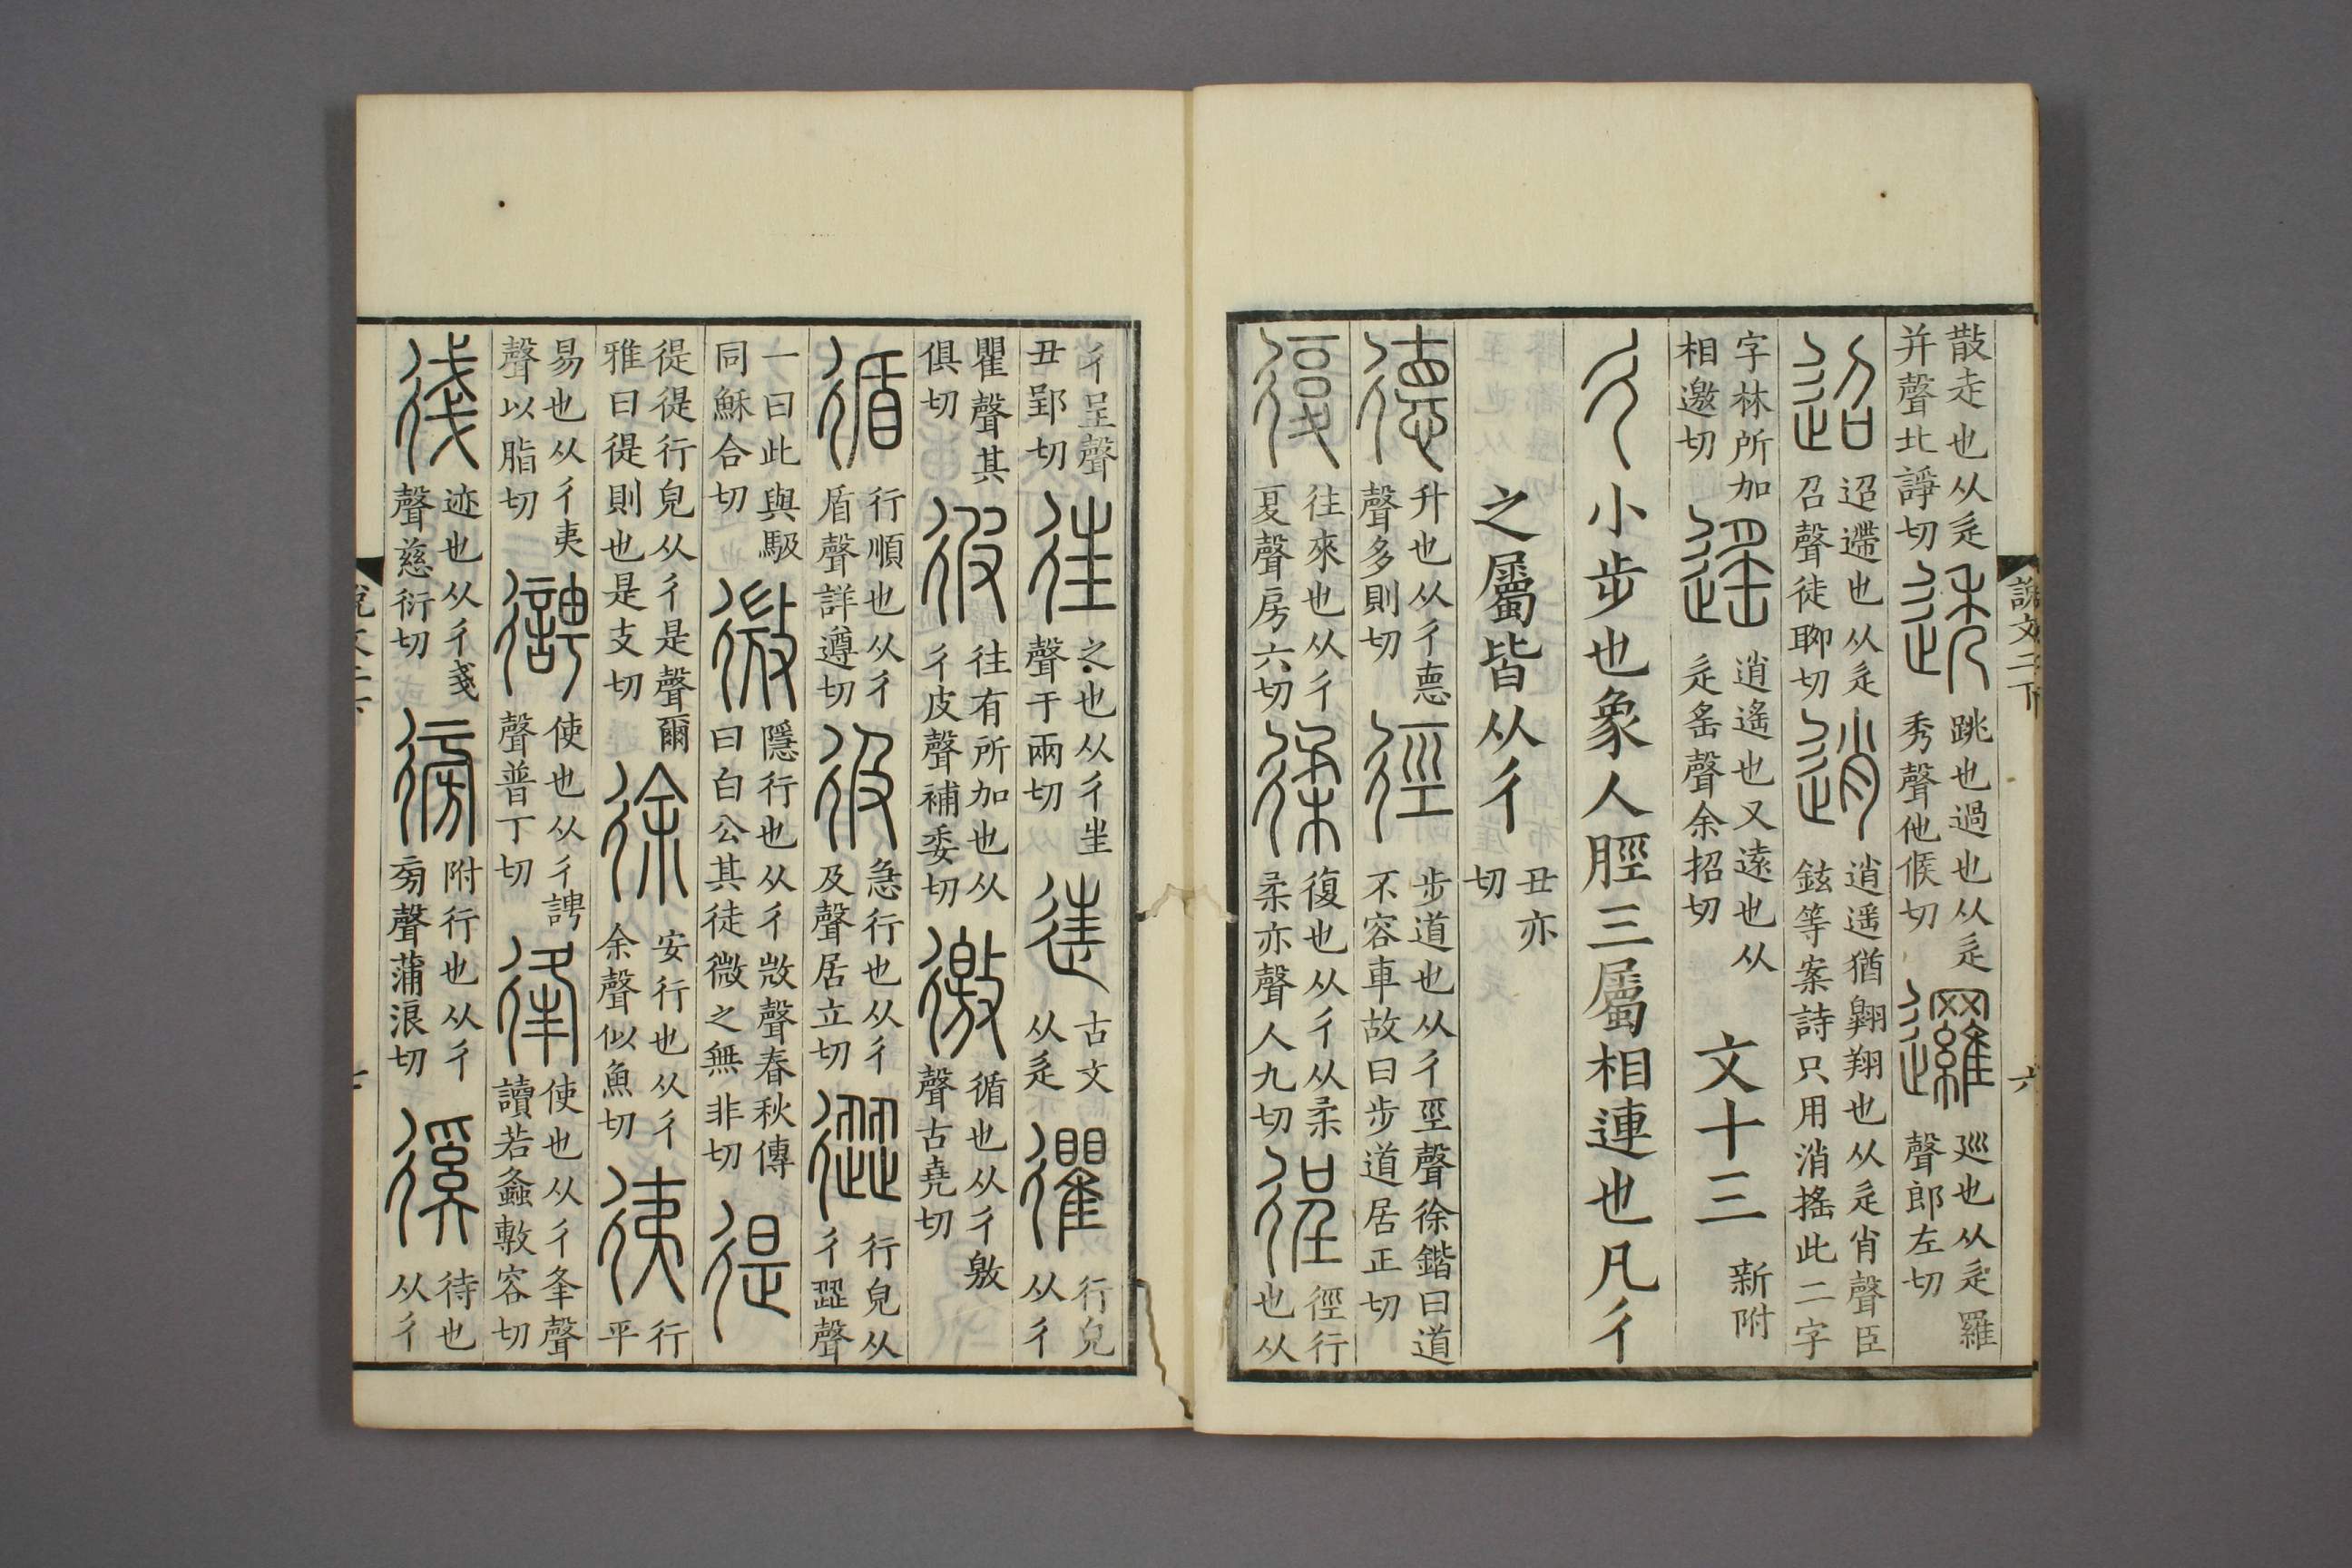 說文二下 六
散走也从辵并聲北諍切透跳也過也从辵秀聲他候切邏巡也从辵羅聲郎左切
迢迢遰也从辵召聲徒聊切逍逍遥猶翱翔也从辵肖聲臣鉉等案詩只用消搖此二字
字林所加相邀切遙逍遙也又遠也从辵䍃聲余招切 文十三 新附
彳小步也象人脛三屬相連也凡彳
之屬皆从彳丑亦切
德升也从彳悳聲多則切徑步道也从彳巠聲徐鍇曰道不容車故曰步道居正切
復往來也从彳夏聲房六切𢔟復也从彳从柔柔亦聲人九切徎徑行也从
彳呈聲丑郢切往之也从彳㞷聲于兩切𨓹古文从辵忂行皃从彳
瞿聲其俱切彼往有所加也从彳皮聲補委切徼循也从彳敫聲古堯切
循行順也从彳盾聲詳遵切彶急行也从彳及聲居立切行皃从彳歰聲
一曰此與馺同穌合切微隱行也从彳𢼸聲春秋傳曰白公其徒微之無非切徥
徥徥行皃从彳是聲爾雅曰徥則也是支切徐安行也从彳余聲似魚切行平
易也从彳夷聲以脂切使也从彳聲普丁切使也从彳夆聲讀若螽敷容切
迹也从彳戔聲慈衍切徬附行也从彳㫄聲蒲浪切徯待也从彳